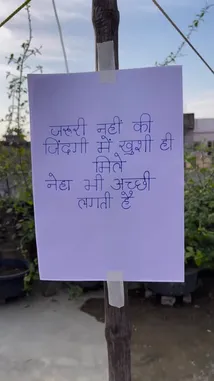 जरुरी नही की
जिंदगी में खुशी ही
मिले
नेहा भी अच्छी
लगती है